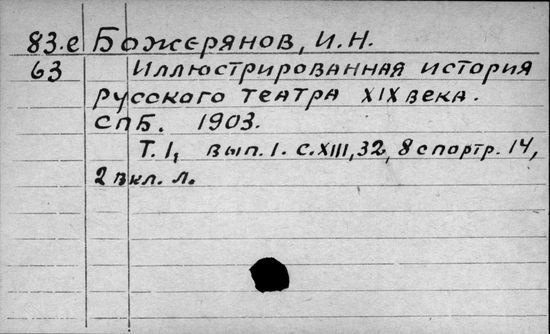 83.е Божерянов, И.Н.
63 Иллюстрированная история
русского театра XIX века.
СПБ. 1903.
Т. I, вып. 1. С. XIII, 32, 8 с портр. 14,
2 вкл. л.